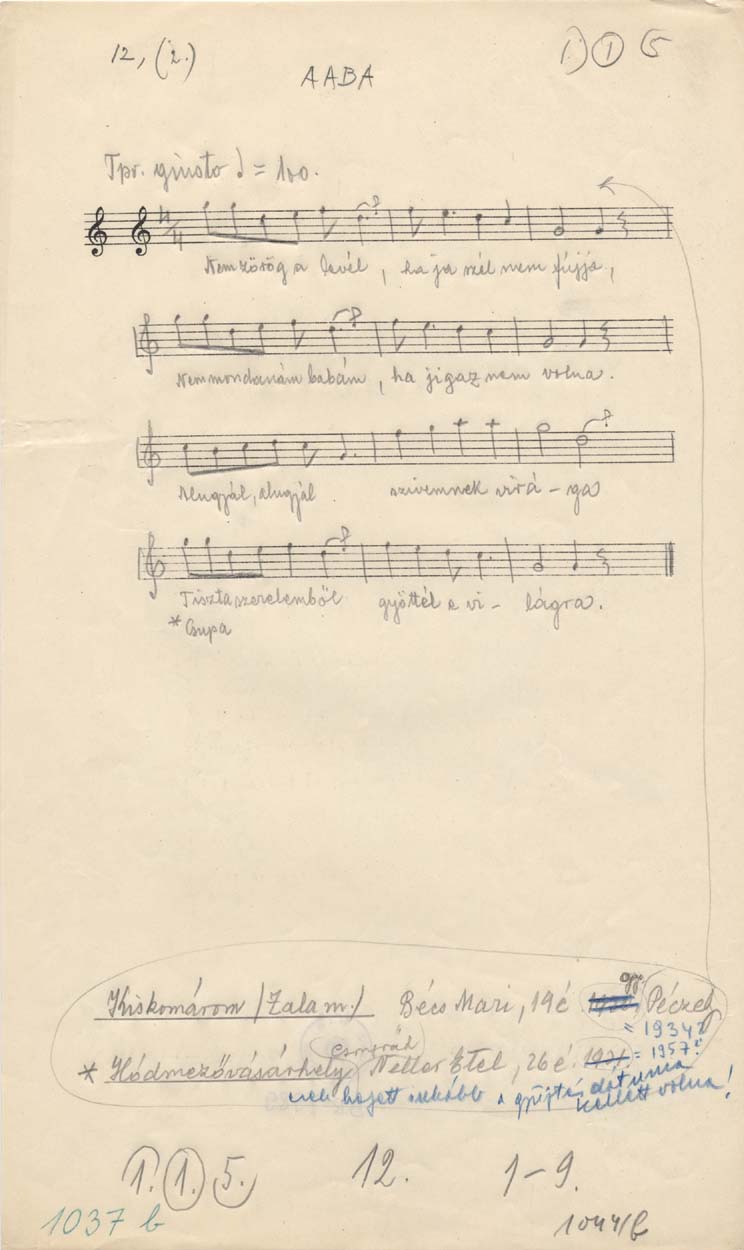 12, (2.)
AABA
1. 1 5
Tpr. giusto = 100.
4/4
Nem zörög a levél, ha ja szél nem fújja,
Nem mondanám babám, ha jigaz nem volna.
Alugjál, alugjál szivemnek virá - ga
Tiszta szerelemből gyöttél e vi - lágra.
* Csupa
Kiskomárom /Zala m./ Bécs Mari, 19é. gy. Péczely
= 1934?
* Hódmezővásárhely Netter Etel, 26 é. = 1957?
helyett inkább a gyűjtés dátuma
kellett volna!
1. 1. 5. 12. 1-9.
1037 b 1044/b